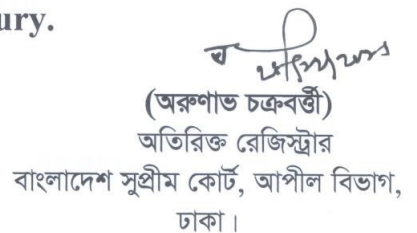 ury.
(অরুণাভ চক্রবর্ত্তী)
অতিরিক্ত রেজিস্ট্রার
বাংলাদেশ সুপ্রীম কোর্ট, আপীল বিভাগ,
ঢাকা।